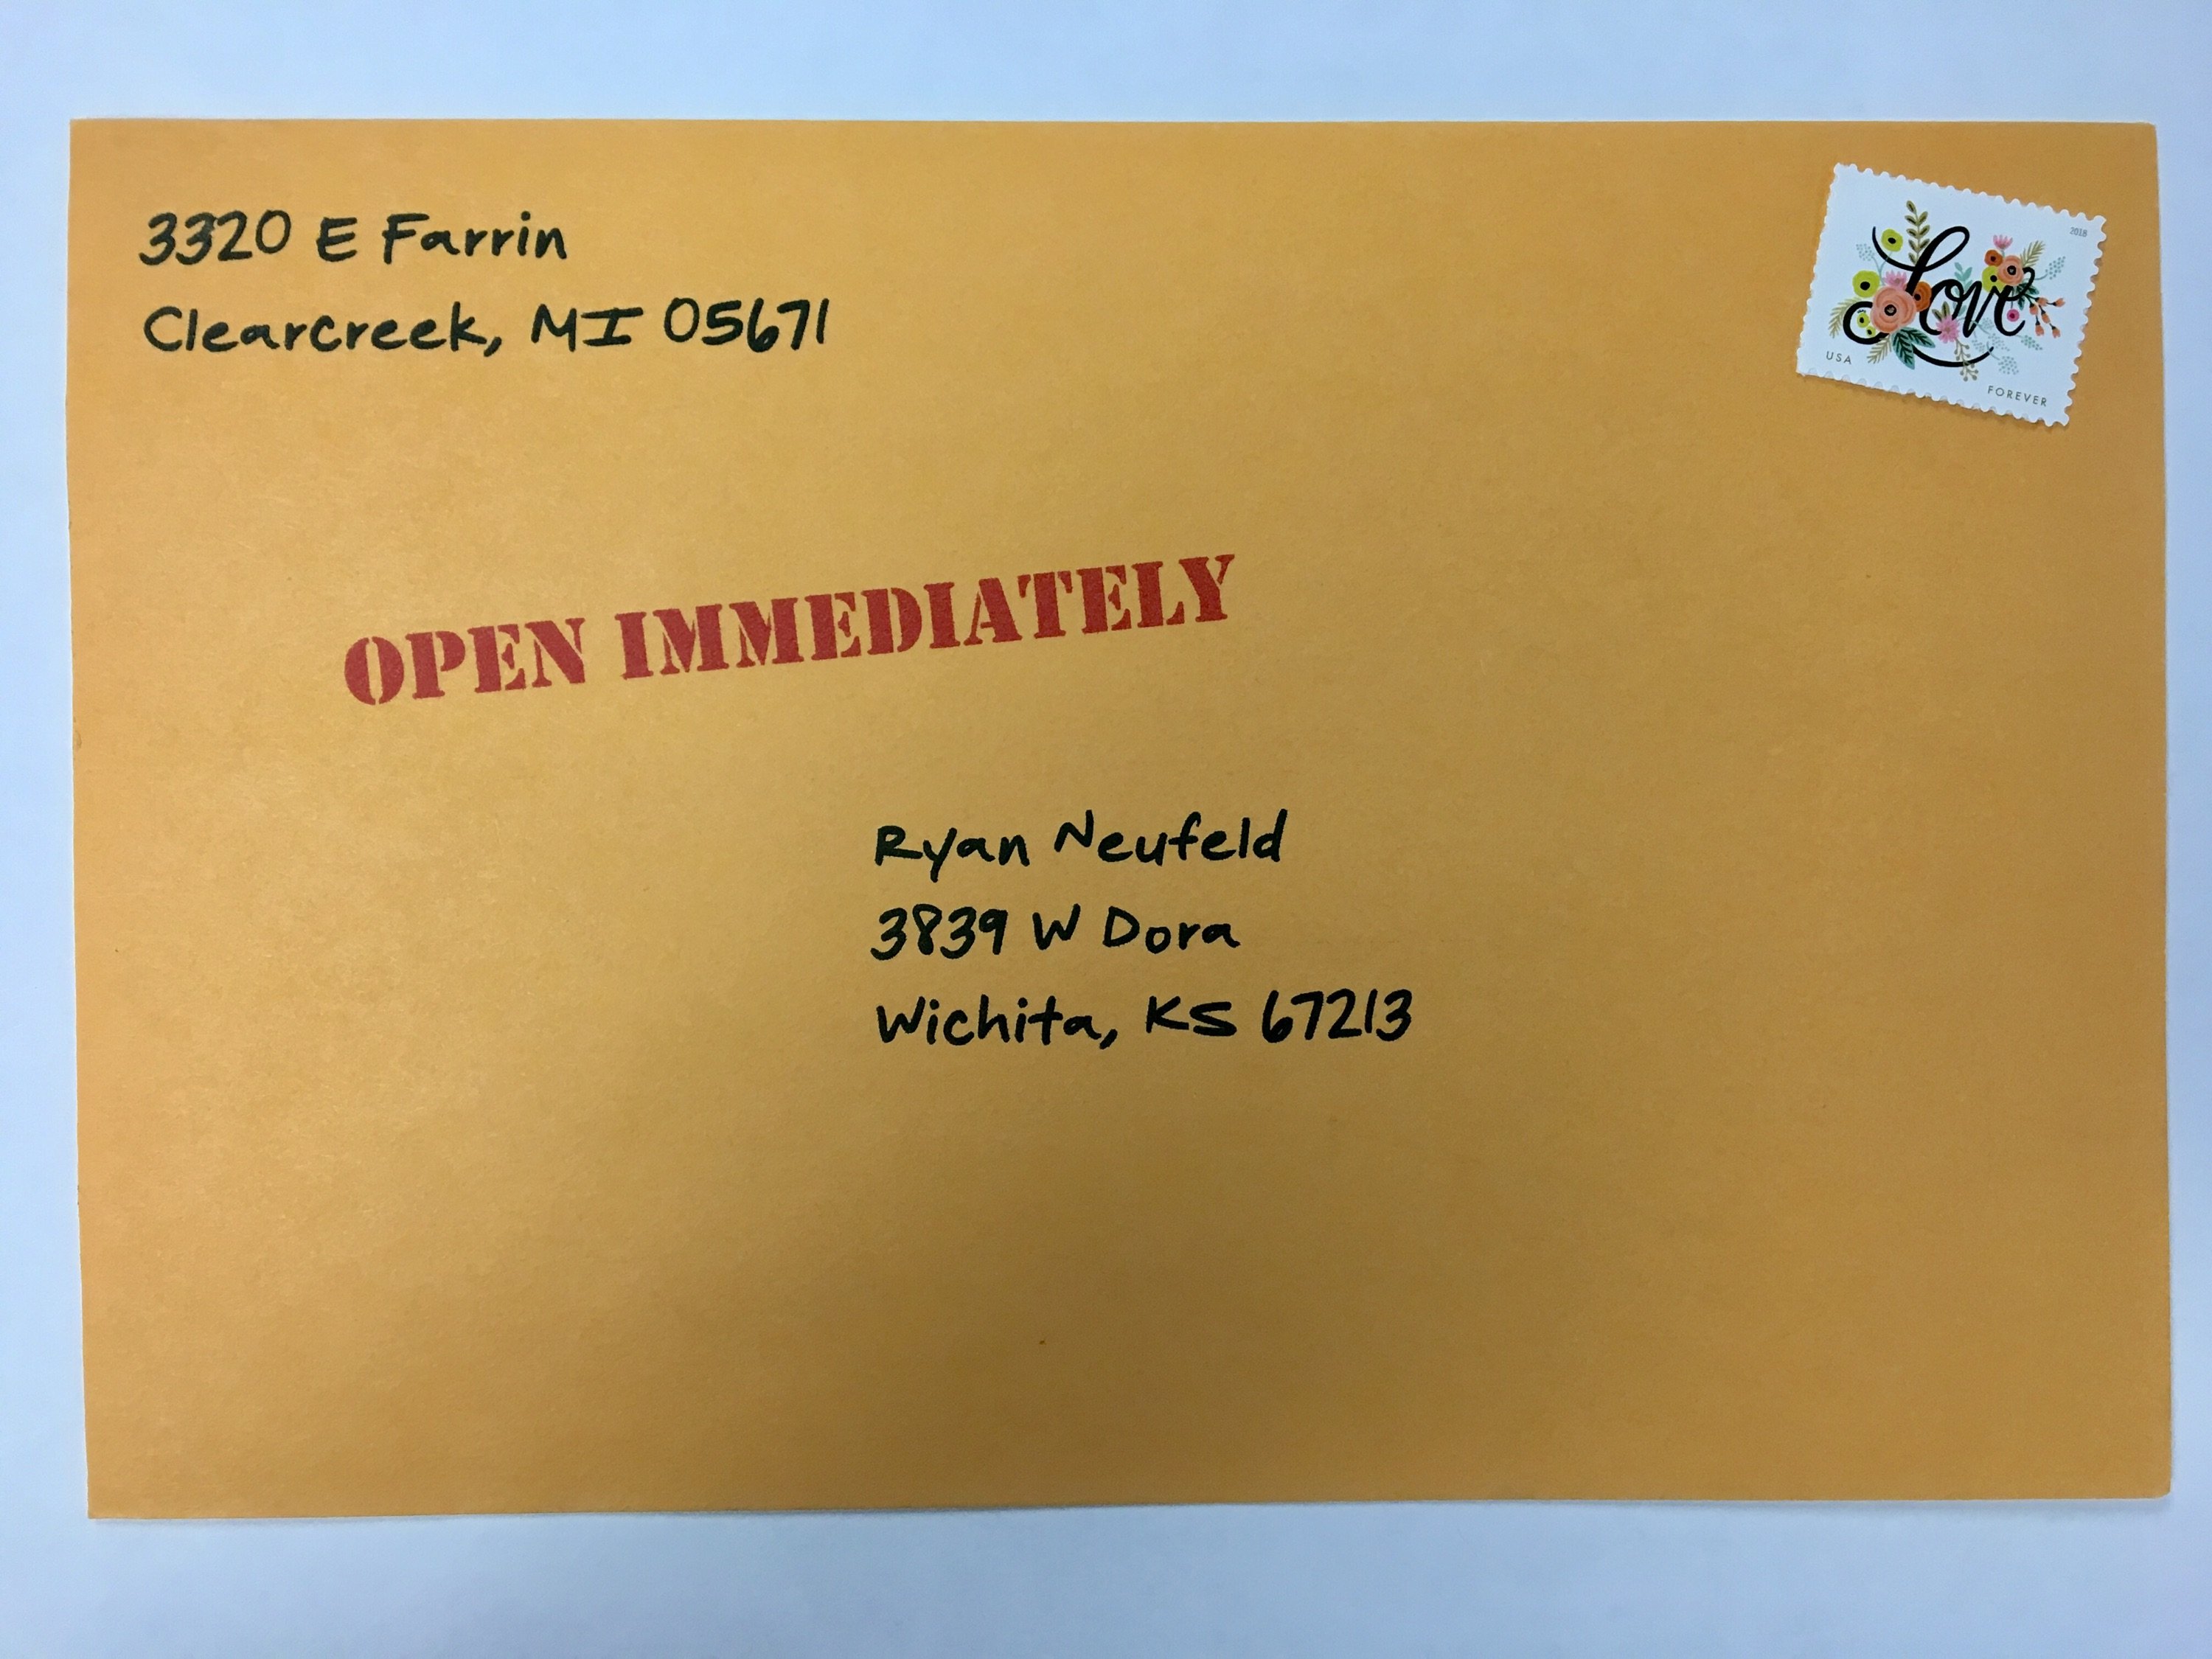 3320 E Farrin
Clearcreek, MI 05671
2018
Love
USA
FOREVER
OPEN IMMEDIATELY
Ryan Neufeld
3839 W Dora
Wichita, KS 67213